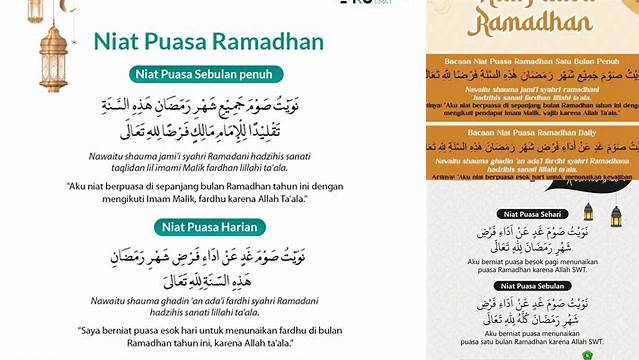 UMAT
Niat Puasa Ramadhan
Niat Puasa Sebulan penuh
نَوَيْتُ صَوْمَ جَمِيْعِ شَهْرِ رَمَضَانَ هٰذِهِ السَّنَةِ
تَقْلِيْدًا لِلْإِمَامِ مَالِكٍ فَرْضًا لِلّٰهِ تَعَالَى
Nawaitu shauma jami'i syahri Ramadani hadzihis sanati
taqlidan lil imami Malik fardhan lillahi ta'ala.
"Aku niat berpuasa di sepanjang bulan Ramadhan tahun ini dengan
mengikuti Imam Malik, fardhu karena Allah Ta'ala."
Niat Puasa Harian
نَوَيْتُ صَوْمَ غَدٍ عَنْ أَدَاءِ فَرْضِ شَهْرِ رَمَضَانِ
هٰذِهِ السَّنَةِ لِلّٰهِ تَعَالَى
Nawaitu shauma ghadin 'an ada'i fardhi syahri Ramadani
hadzihis sanati lillahi ta'ala.
"Saya berniat puasa esok hari untuk menunaikan fardhu di bulan
Ramadhan tahun ini, karena Allah ta'ala."
Ramadhan
Bacaan Niat Puasa Ramadhan Satu Bulan Penuh
نَوَيْتُ صَوْمَ جَمِيْعِ شَهْرِ رَمَضَانَ هٰذِهِ السَّنَةِ فَرْضًا لِلّٰهِ تَعَالَى
Nawaitu shauma jami'i syahri ramadhani
hadzihis sanati fardhan lillahi ta'ala.
"Aku niat berpuasa di sepanjang bulan Ramadhan tahun ini dengan
mengikuti pendapat Imam Malik, wajib karena Allah Ta'ala."
Bacaan Niat Puasa Ramadhan Daily
نَوَيْتُ صَوْمَ غَدٍ عَنْ أَدَاءِ فَرْضِ شَهْرِ رَمَضَانَ هٰذِهِ السَّنَةِ لِلّٰهِ
Nawaitu shauma ghadin 'an ada'i fardhi syahri Ramadhana
hadzihis sanati lillahi ta'ala.
Artinya: "Aku berniat puasa esok hari untuk menunaikan kewajiban
Niat Puasa Sehari
نَوَيْتُ صَوْمَ غَدٍ عَنْ اَدَاءِ فَرْضِ
شَهْرِ رَمَضَانَ لِلّٰهِ تَعَالَى
Aku berniat puasa besok pagi menunaikan
puasa Ramadhan karena Allah SWT.
Niat Puasa Sebulan
نَوَيْتُ صَوْمَ غَدٍ عَنْ اَدَاءِ فَرْضِ
شَهْرِ رَمَضَانَ كُلِّهِ لِلّٰهِ تَعَالَى
Aku berniat puasa menunaikan
puasa satu bulan Ramadhan karena Allah SWT.